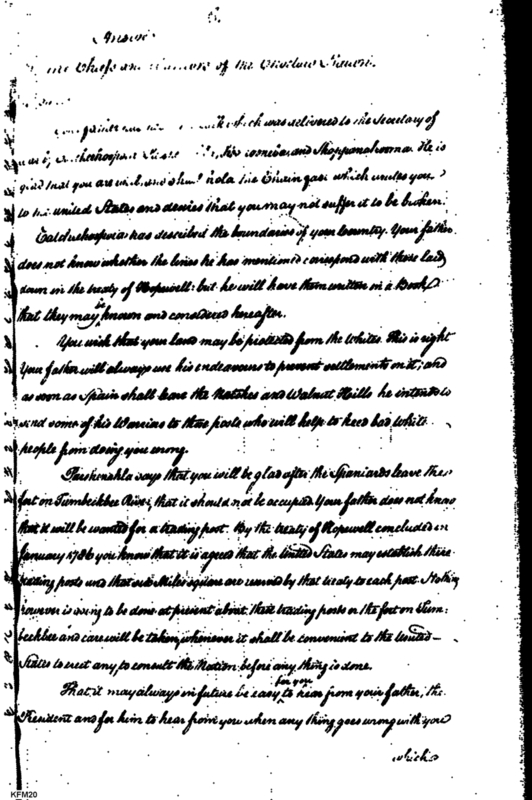 5.
Answer
Chiefs and Warriors of the Choctaw Nation.
which was delivered to the Secretary of
war by and Shappanahooma. He is
glad that you are which unites you
to the united States and desires that you may not suffer it to be broken.
has described the boundaries of your Country. Your father
does not know whether the lines he has mentioned correspond with those laid
down in the treaty of Hopewell: but he will have them written in a Book,
that they may be known and considered hereafter.
You wish that your land may be protected from the Whites. This is right
Your father will always use his endeavours to prevent settlements on it; and
as soon as Spain shall leave the Natches and Walnut Hills he intends to
send some of his Warriors to those posts who will help to keep bad White
people from doing you wrong.
says that you will be glad after the Spaniards leave the
fort on Tumbeckbee River, that it should not be occupied. Your father does not know
that it will be wanted for a trading post. By the treaty of Hopewell concluded in
January 1786 you know that it is agreed that the United States may establish three
trading posts and that six Miles square are reserved by that treaty to each post. Nothing
however is going to be done at present about these trading posts or the fort on Tum:
beckbee and care will be taken, whenever it shall be convenient to the United
States to erect any to consult the Nation before any thing is done.
That it may always in future be easy for you to hear from your father, the
President and for him to hear from you when any thing goes wrong with you
which
KFM20